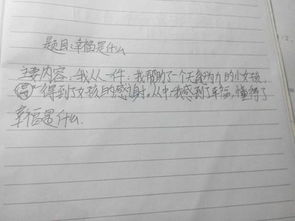 题目:幸福是什么
主要内容:我从一件:我帮助了一个无能为力的小女孩,
得到了女孩的感谢。从中我感到了幸福,懂得了
幸福是什么.